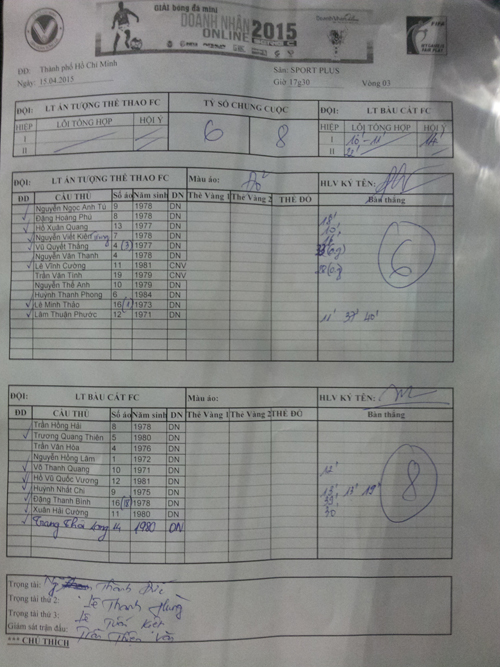 GIẢI bóng đá mini
DOANH NHÂN 2015
ONLINE
FIFA
ĐĐ: Thành phố Hồ Chí Minh
Ngày: 15.04.2015
Sân: SPORT PLUS
Giờ 17g30 Vòng 03
ĐỘI: LT ẤN TƯỢNG THỂ THAO FC TỶ SỐ CHUNG CUỘC ĐỘI: LT BÀU CÁT FC
HIỆP LỖI TỔNG HỢP HỘI Ý 6 8 HIỆP LỖI TỔNG HỢP HỘI Ý
I I
II II
ĐỘI: LT ẤN TƯỢNG THỂ THAO FC Màu áo: Đỏ HLV KÝ TÊN:
ĐD CẦU THỦ Số áo Năm sinh DN Thẻ Vàng 1 Thẻ Vàng 2 THẺ ĐỎ Bàn thắng
Nguyễn Ngọc Anh Tú 9 1978 DN
Đặng Hoàng Phú 8 1978 DN
Hồ Xuân Quang 13 1977 DN
Nguyễn Viết Kiên 7 1978 DN
Vũ Quyết Thắng 4 (3) 1977 DN
Nguyễn Văn Thanh 4 1978 DN
Lê Vĩnh Cường 11 1981 CNV
Trần Văn Tính 19 1979 CNV
Nguyễn Thế Anh 10 1979 DN
Huỳnh Thanh Phong 6 1984 DN
Lê Minh Thảo 16 (1) 1973 DN
Lâm Thuận Phước 12 1971 DN 11' 37' 40'
6
ĐỘI: LT BÀU CÁT FC Màu áo: HLV KÝ TÊN:
ĐD CẦU THỦ Số áo Năm sinh DN Thẻ Vàng 1 Thẻ Vàng 2 THẺ ĐỎ Bàn thắng
Trần Hồng Hải 8 1978 DN
Trương Quang Thiên 5 1980 DN
Trần Văn Hóa 4 1976 DN
Nguyễn Hồng Lâm 1 1972 DN
Võ Thanh Quang 10 1971 DN 12'
Hồ Vũ Quốc Vương 12 1981 DN
Huỳnh Nhất Chi 9 1975 DN
Đặng Thanh Bình 16 (8) 1978 DN
Xuân Hải Cường 11 1980 DN 30'
14 1980 DN
8
Trọng tài:
Trọng tài thứ 2: Lê Thanh
Trọng tài thứ 3: Lê Tuấn Kiệt
Giám sát trận đấu: Trần Thiên
*** CHÚ THÍCH